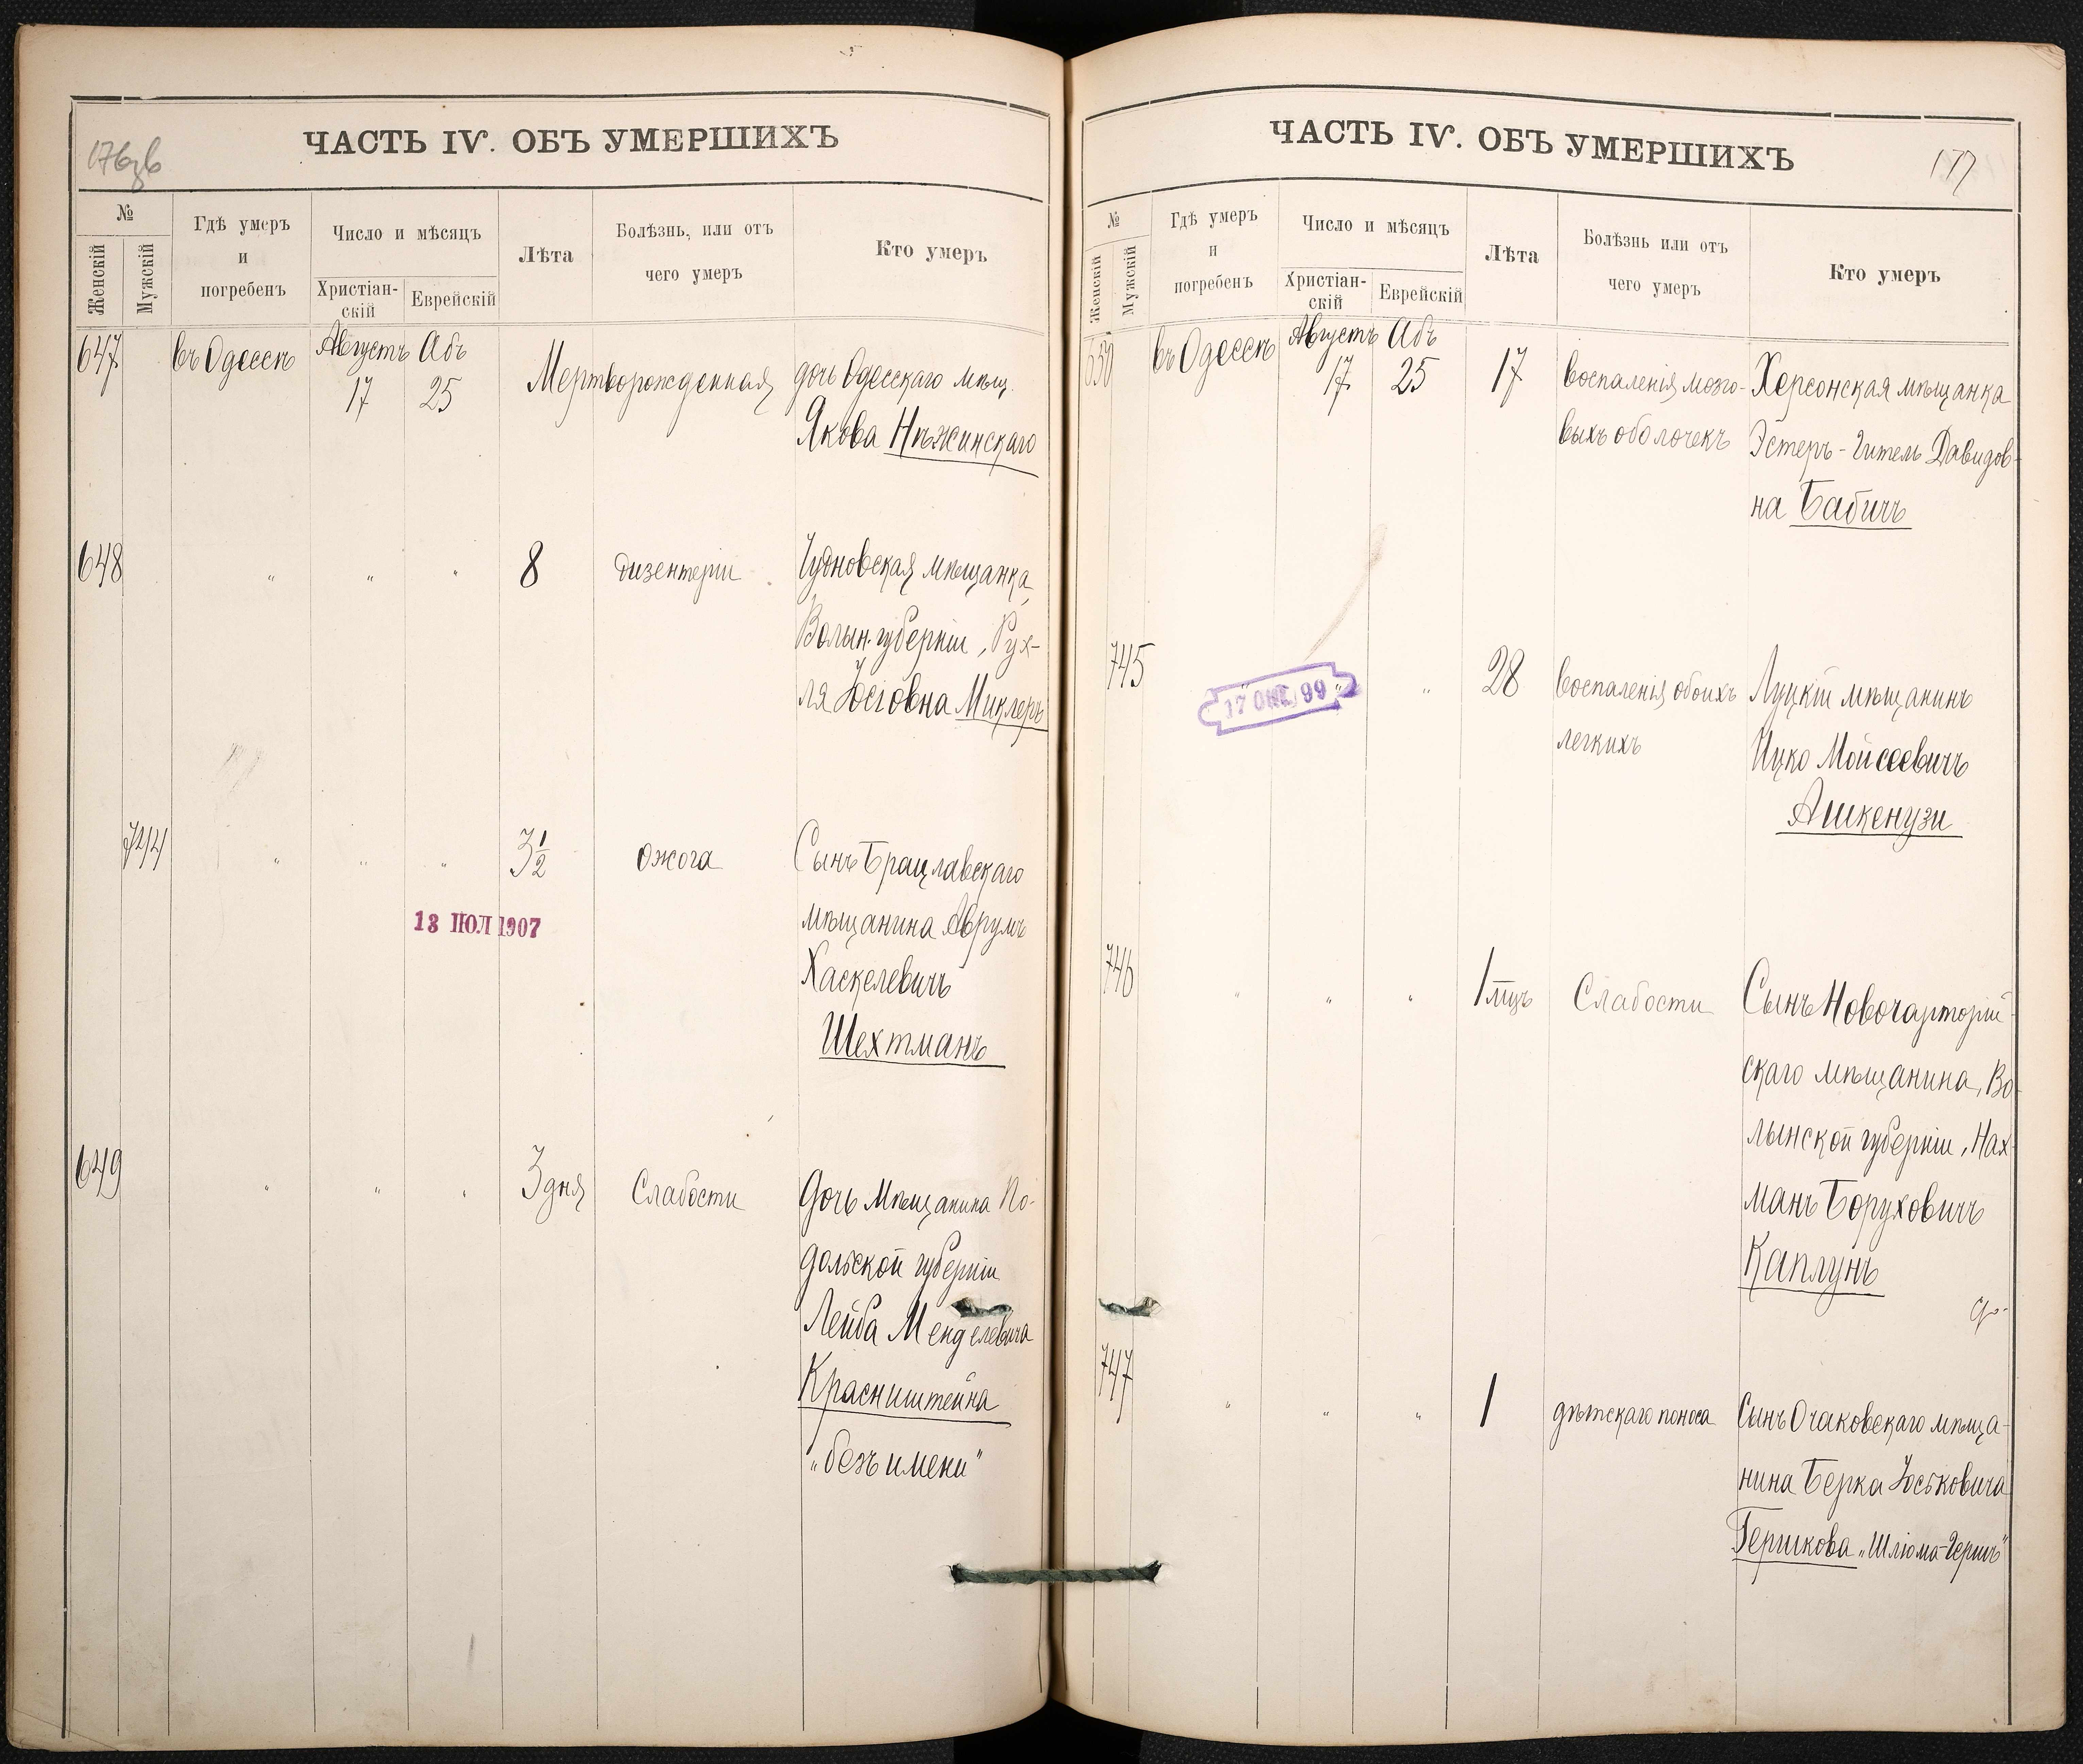 176зв
ЧАСТЬ IV. ОБЪ УМЕРШИХЪ
№
Женскій
Мужскій
Гдѣ умеръ
и
погребенъ
Число и мѣсяцъ
Христіан-
скій
Еврейскій
Лѣта
Болѣзнь, или отъ
чего умеръ
Кто умеръ
647
въ Одессѣ
Августъ Абъ
17 25
Мертворожденная
дочь Одесскаго мѣщ.
Якова Нѣжинскаго
648 " " " 8 дизентеріи
Чудновская мѣщанка,
Волын. губерніи, Рух-
ля Іосіовна Миклеръ
744 " " " 3½ ожога
Сынъ Брацлавскаго
мѣщанина Аврумъ
Хаскелевичъ
Шехтманъ
13 ІЮЛ 1907
649 " " " 3 дня Слабости
Дочь мѣщанина По-
дольской губерніи
Лейба Менделевича
Красништейна
"безъ имени"
177
ЧАСТЬ IV. ОБЪ УМЕРШИХЪ
№
Женскій
Мужскій
Гдѣ умеръ
и
погребенъ
Число и мѣсяцъ
Христіан-
скій
Еврейскій
Лѣта
Болѣзнь или отъ
чего умеръ
Кто умеръ
650
въ Одессѣ
Августъ Абъ
17 25
17
воспаленія мозго-
выхъ оболочекъ
Херсонская мѣщанка
Эстеръ-Гитель Давидов-
на Бабичъ
745 " " " 28
17 ОКТ. 99
воспаленія обоихъ
легкихъ
Луцкій мѣщанинъ
Ицко Мойсеевичъ
Ашкенузи
746 " " " 1 мцъ Слабости
Сынъ Новочарторій-
скаго мѣщанина, Во-
лынской губерніи, Нах-
манъ Боруховичъ
Каплунъ
747 " " " 1 дѣтскаго поноса
Сынъ Очаковскаго мѣща-
нина Берка Іоськовича
Гершкова "Шлюма-Гершъ"